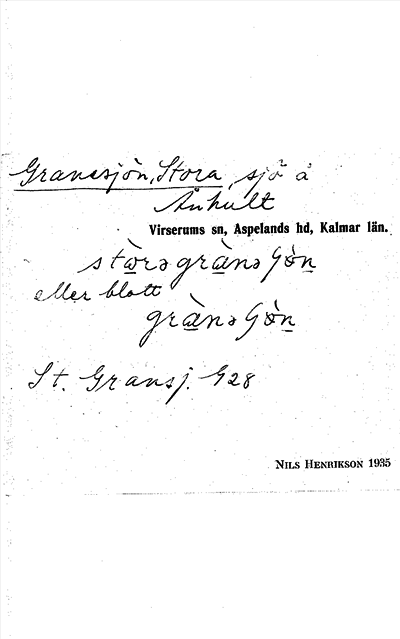 Granesjön, Stora, sjö å
Ånhult
Virserums sn, Aspelands hd, Kalmar län.
stòrə grànə ʃö̀n
eller blott
grànə ʃö̀n
St. Gransj. G28
NILS HENRIKSON 1935